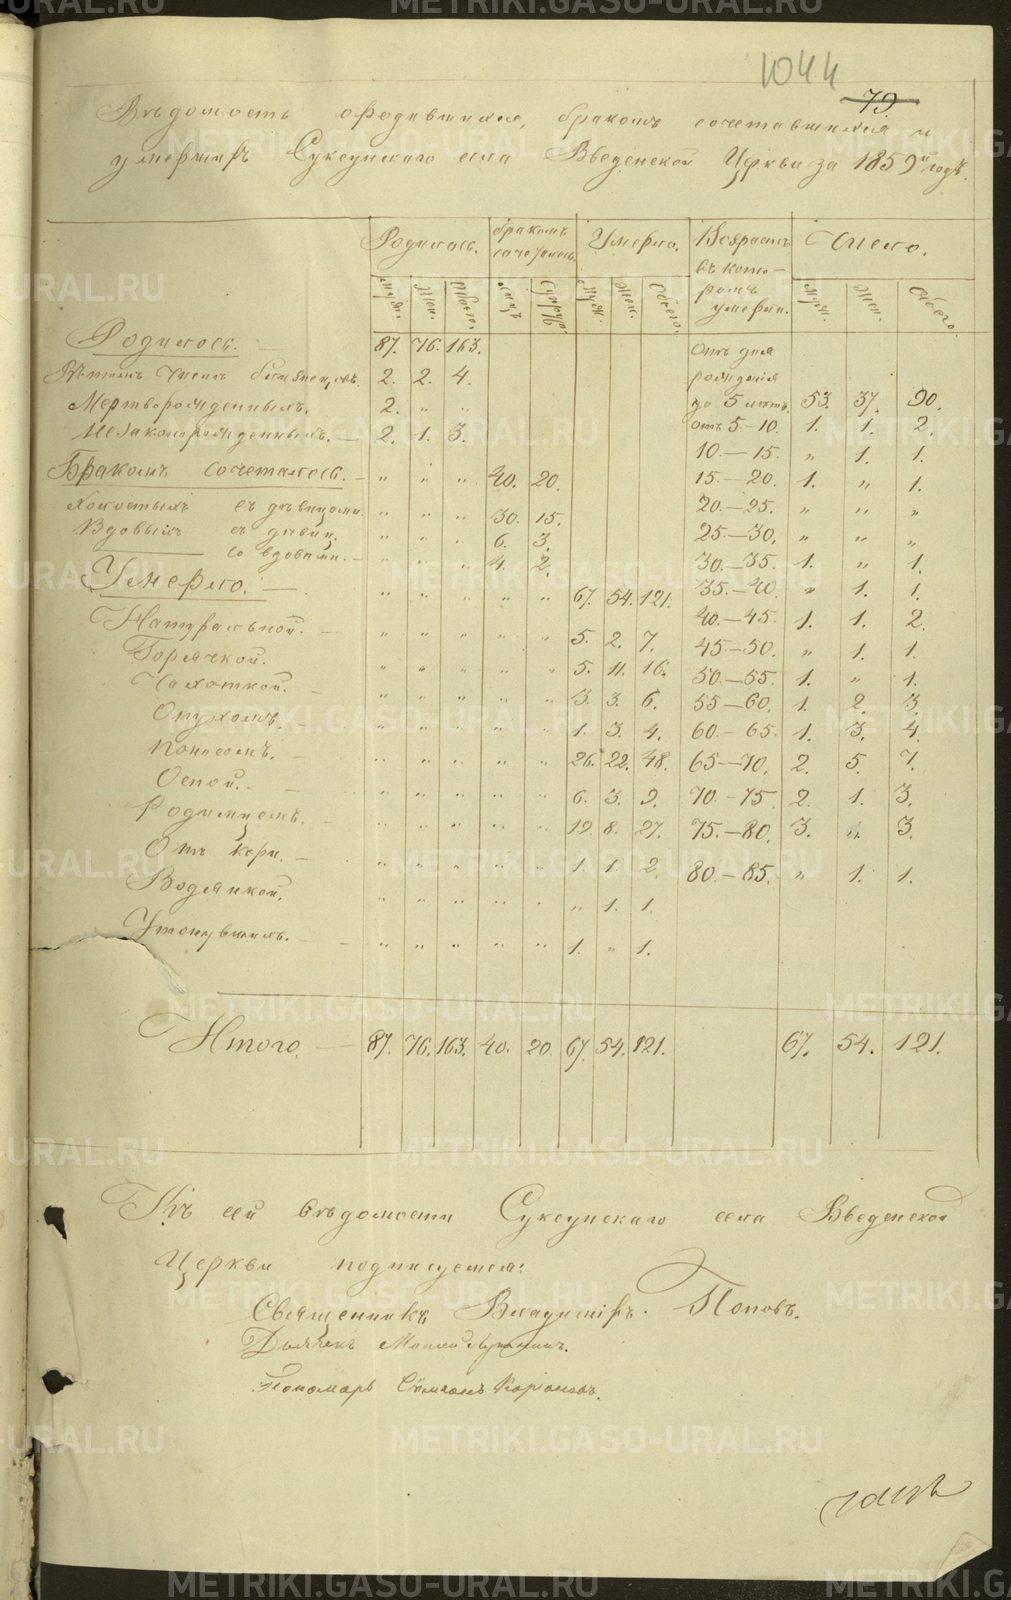 1044
79
Вѣдомость о родившихся, бракомъ сочетавшихся и
умершихъ Суксунскаго села Введенской Церкви за 1859й годъ.
Родилось. бракомъ сочеталось. Умерло. Возрастъ въ кото- ромъ умерли. Число.
Муж. Жен. Обоего. лицъ Супруж. Муж. Жен. Обоего. Муж. Жен. Обоего.
Родилось. — 87. 76. 163. Отъ дня
Въ томъ числѣ близнецовъ. 2. 2. 4. рожденія
Мерторожденныхъ. 2. " " до 5 лѣтъ. 53. 37. 90.
Незаконорожденныхъ. — 2. 1. 3. отъ 5–10. 1. 1. 2.
10.–15. " 1. 1.
Бракомъ сочеталось. — " " " 40. 20. 15.–20. 1. " 1.
Холостыхъ съ дѣвицами. " " " 30. 15. 20.–25. " " "
Вдовыхъ съ дѣвиц. " " " 6. 3. 25.–30. " " "
со вдовами. — " " " 4. 2. 30.–35. 1. " 1.
Умерло. — " " " " " 67. 54. 121. 35.–40. " 1. 1.
40.–45. 1. 1. 2.
Натуральной. — " " " " " 5. 2. 7. 45–50. " 1. 1.
Горячкой. " " " " " 5. 11. 16. 50.–55. 1. " 1.
Чахоткой. — " " " " " 3. 3. 6. 55–60. 1. 2. 3.
Опухолью. — " " " " " 1. 3. 4. 60.–65. 1. 3. 4.
Поносомъ. — " " " " " 26. 22. 48. 65–70. 2. 5. 7.
Оспой. — " " " " " 6. 3. 9. 70.–75 2. 1. 3.
Родимцомъ. — " " " " " 19. 8. 27. 75.–80. 3. " 3.
Отъ кори. — " " " " " 1. 1. 2. 80.–85. " 1. 1.
Водянкой. " " " " " " 1. 1.
Утонувшихъ. — " " " " " 1. " 1.
Итого. — 87. 76. 163. 40. 20. 67. 54. 121. 67. 54. 121.
Къ сей вѣдомости Суксунскаго села Введенской
Церкви подписуемся:
Священникъ Владиміръ Поповъ.
Дьячекъ
Пономарь Симеонъ
METRIKI.GASO-URAL.RU